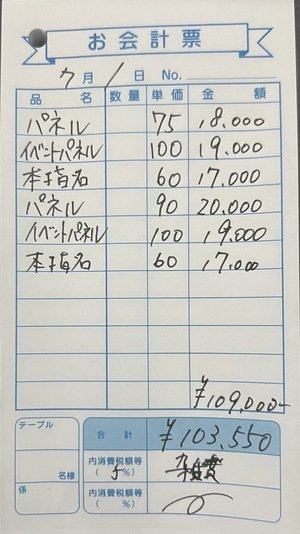 お会計票
7月1日 No.
品名 数量 単価 金額
パネル 75 18.000
イベントパネル 100 19.000
本指名 60 17.000
パネル 90 20.000
イベントパネル 100 19.000
本指名 60 17.000
¥109,000-
テーブル
合計 ¥103,550
名様
内消費税額等
(5%)
係
内消費税額等
( %)